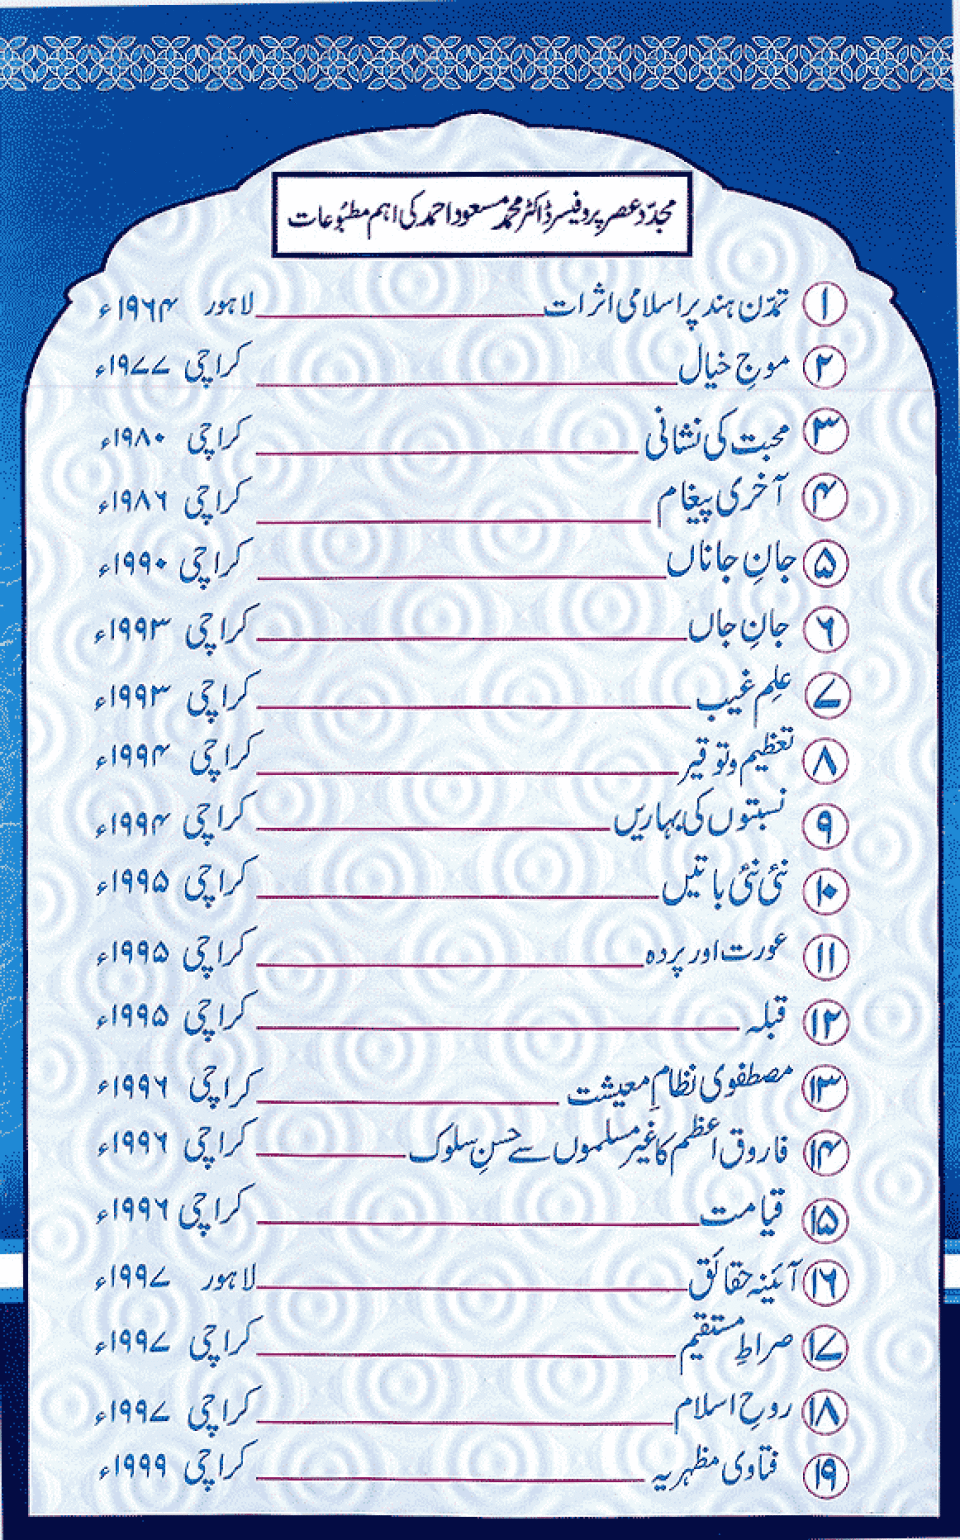 مجدّد عصر پروفیسر ڈاکٹر محمد مسعود احمد کی اہم مطبُوعات
۱ تمدّن ہند پر اسلامی اثرات لاہور ۱۹۶۴ء
۲ موجِ خیال کراچی ۱۹۷۷ء
۳ محبت کی نشانی کراچی ۱۹۸۰ء
۴ آخری پیغام کراچی ۱۹۸۶ء
۵ جانِ جاناں کراچی ۱۹۹۰ء
۶ جانِ جاں کراچی ۱۹۹۳ء
۷ علِم غیب کراچی ۱۹۹۳ء
۸ تعظیم و توقیر کراچی ۱۹۹۴ء
۹ نسبتوں کی بہاریں کراچی ۱۹۹۴ء
۱۰ نئی نئی باتیں کراچی ۱۹۹۵ء
۱۱ عورت اور پردہ کراچی ۱۹۹۵ء
۱۲ قبلہ کراچی ۱۹۹۵ء
۱۳ مصطفوی نظامِ معیشت کراچی ۱۹۹۶ء
۱۴ فاروق اعظم کا غیر مسلموں سے حسنِ سلوک کراچی ۱۹۹۶ء
۱۵ قیامت کراچی ۱۹۹۶ء
۱۶ آئینہ حقائق لاہور ۱۹۹۷ء
۱۷ صراطِ مستقیم کراچی ۱۹۹۷ء
۱۸ روحِ اسلام کراچی ۱۹۹۷ء
۱۹ فتاوی مظہریہ کراچی ۱۹۹۹ء